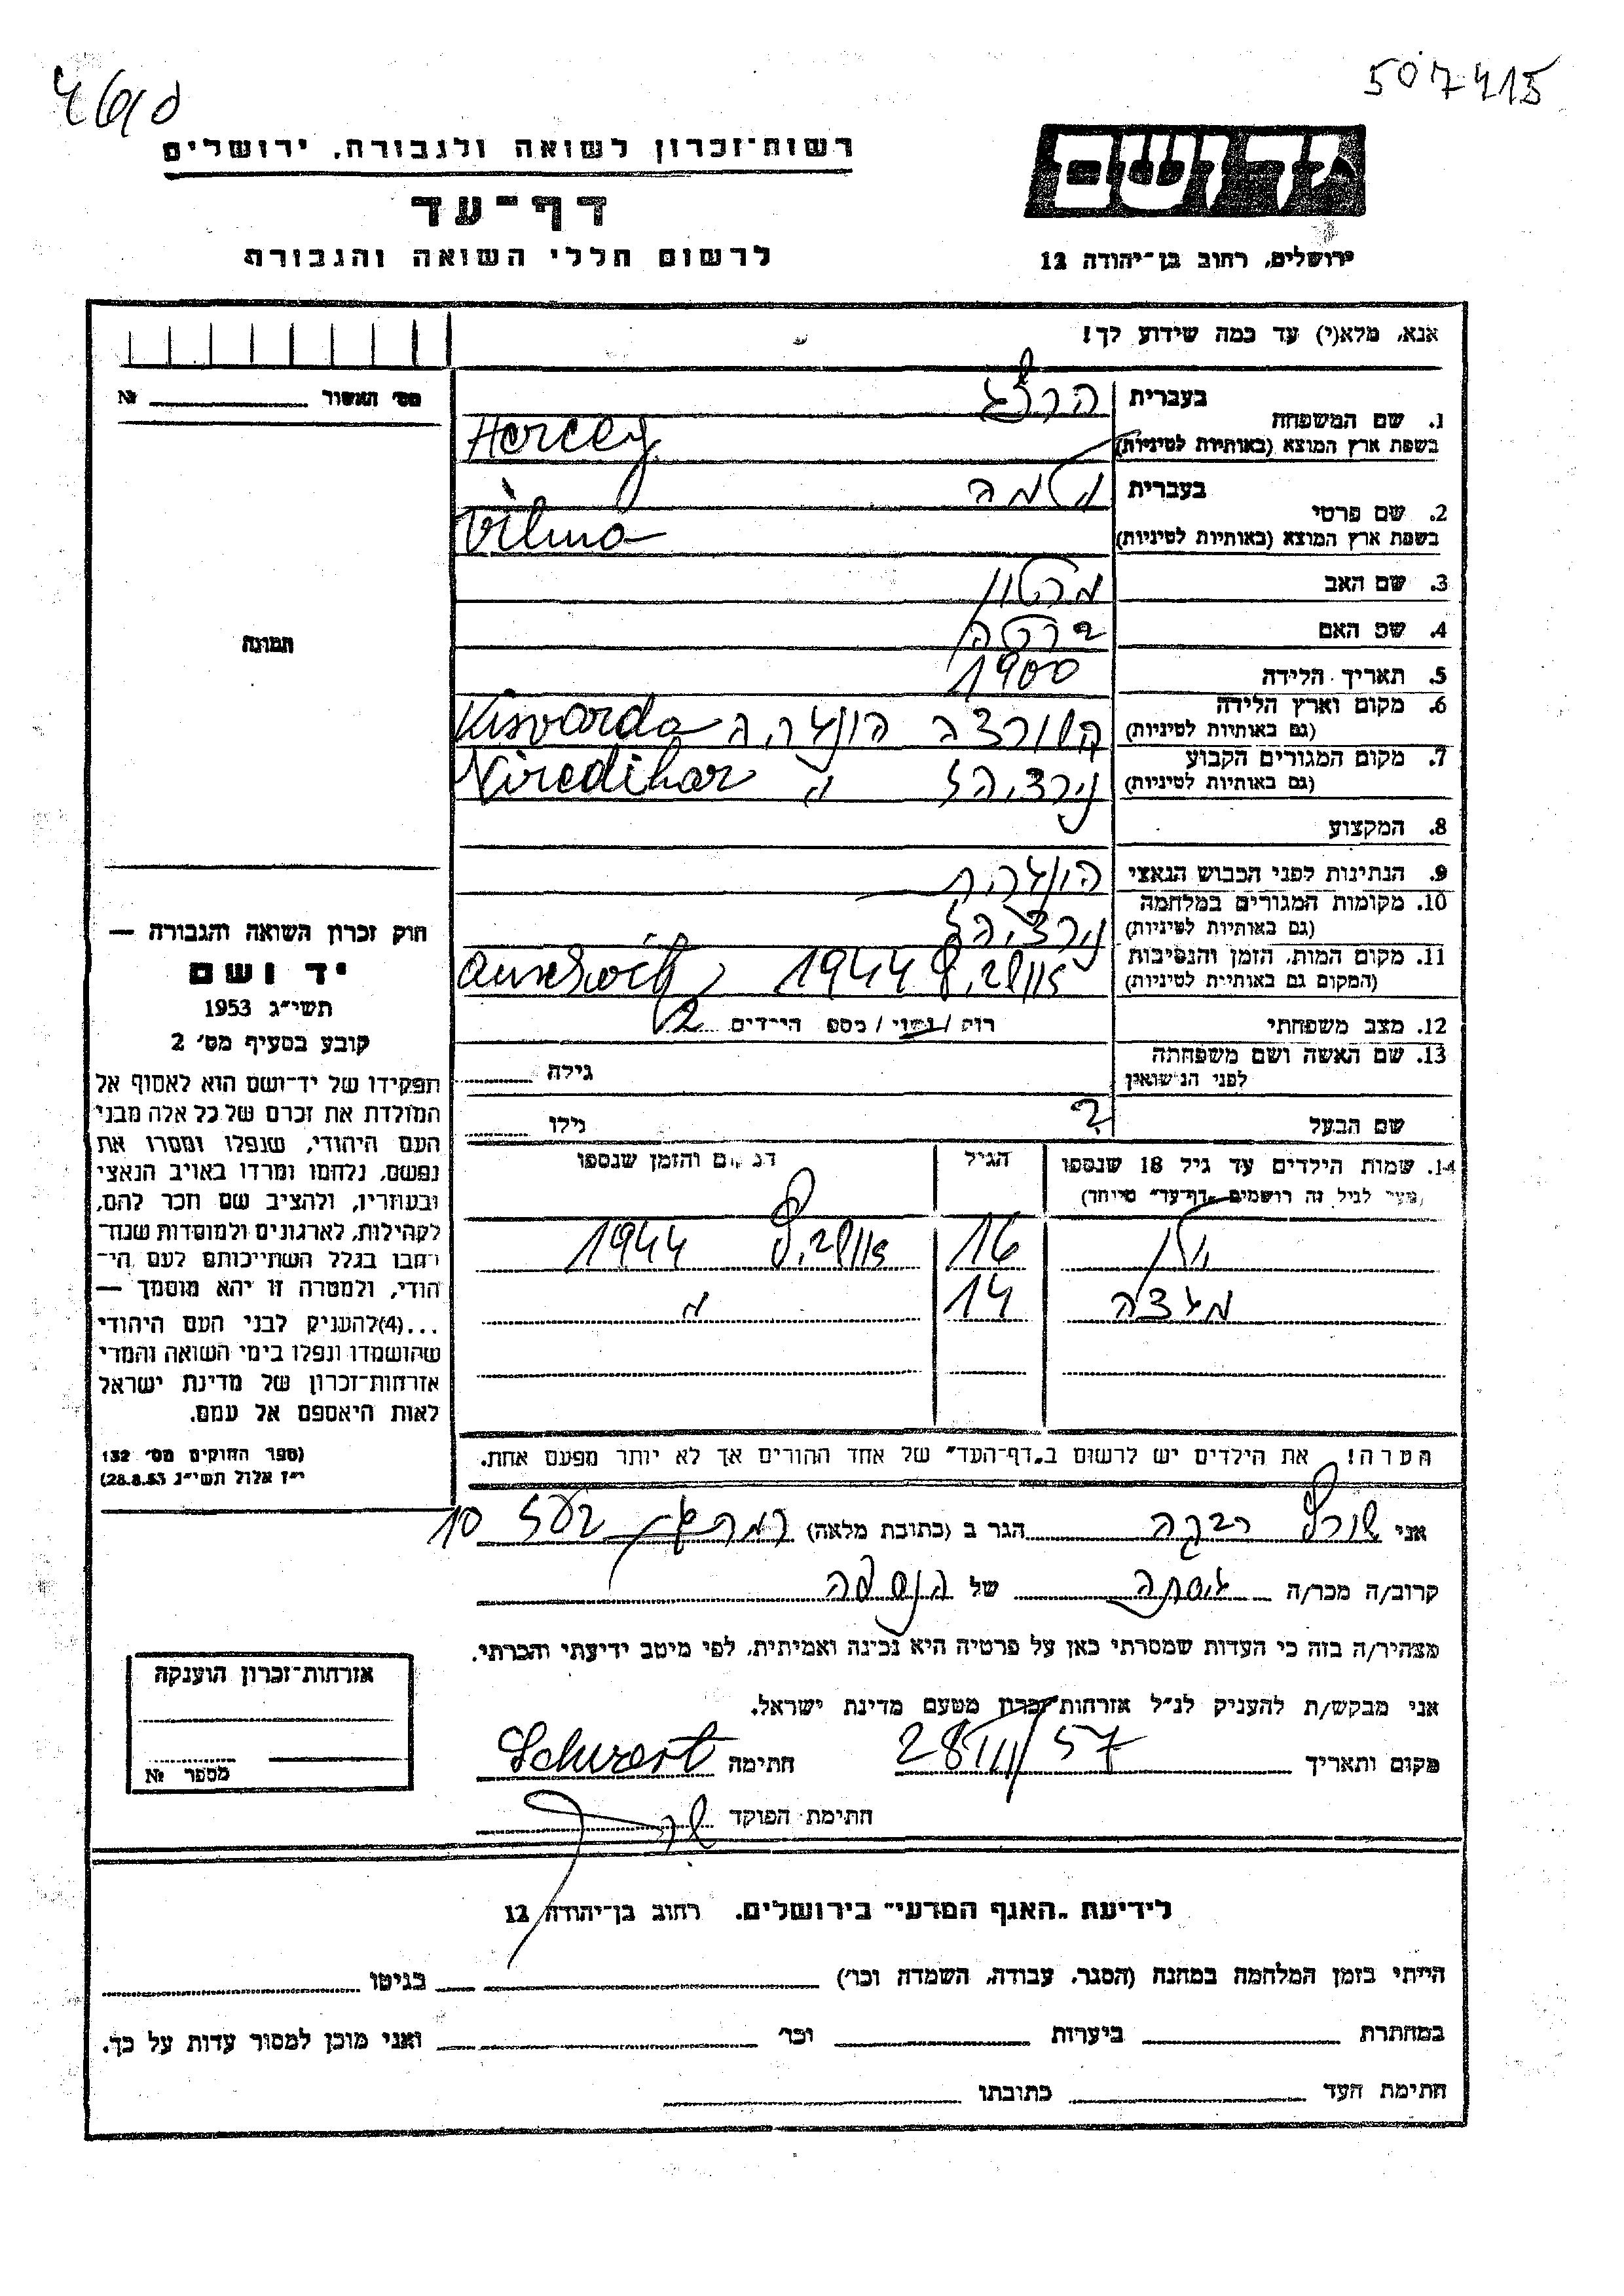 507415
רשות־זכרון לשואה ולגבורה, ירושלים
דף־עד
לרשום חללי השואה והגבורה
ירושלים, רחוב בן־יהודה 12
אנא, מלא(י) עד כמה שידוע לך!
מס׳ האשור № 
בעברית
1. שם המשפחה
בשפת ארץ המוצא (באותיות לטיניות) Herceg
בעברית וילמה
2. שם פרטי
בשפת ארץ המוצא (באותיות לטיניות) Vilma
3. שם האב מרטון
4. שם האם ברטה
5. תאריך הלידה 1900
6. מקום וארץ הלידה
(גם באותיות לטיניות) Kisvarda
7. מקום המגורים הקבוע
(גם באותיות לטיניות) Niredihaz
8. המקצוע
9. הנתינות לפני הכבוש הנאצי הונגרית
10. מקומות המגורים במלחמה
(גם באותיות לטיניות)
11. מקום המות, הזמן והנסיבות
(המקום גם באותיות לטיניות) אושויץ 1944
12. מצב משפחתי רוק / נשוי / מספ הילדים 2
13. שם האשה ושם משפחתה
לפני הנישואין גילה
שם הבעל ? גילו
14. שמות הילדים עד גיל 18 שנספו הגיל המקום והזמן שנספו
(מעל לגיל זה רושמים "דף־עד" מיוחד)
16 אושויץ 1944
מגדה 14 "
הערה! את הילדים יש לרשום ב"דף־העד" של אחד ההורים אך לא יותר מפעם אחת.
תמונה
חוק זכרון השואה והגבורה —
יד ושם
תשי״ג 1953
קובע בסעיף מס׳ 2
תפקידו של יד־ושם הוא לאסוף אל
המולדת את זכרם של כל אלה מבני
העם היהודי, שנפלו ומסרו את
נפשם, נלחמו ומרדו באויב הנאצי
ובעוזריו, ולהציב שם וזכר להם,
לקהילות, לארגונים ולמוסדות שנח־
רבו בגלל השתייכותם לעם הי־
הודי, ולמטרה זו יהא מוסמך —
...(4)להעניק לבני העם היהודי
שהושמדו ונפלו בימי השואה והמרי
אזרחות־זכרון של מדינת ישראל
לאות היאספם אל עמם.
(ספר החוקים מס׳ 132
י״ז אלול תשי״ג 28.8.53)
אני רבקה הגר ב (כתובת מלאה) 10
קרוב/ה מכר/ה גיסתה של הנספה
מצהיר/ה בזה כי העדות שמסרתי כאן על פרטיה היא נכונה ואמיתית, לפי מיטב ידיעתי והכרתי.
אני מבקש/ת להעניק לנ״ל אזרחות־זכרון מטעם מדינת ישראל.
מקום ותאריך 28/III/57 חתימה
חתימת הפוקד
אזרחות־זכרון הוענקה
מספר №
לידיעת "האגף המדעי" בירושלים. רחוב בן־יהודה 12
הייתי בזמן המלחמה במחנה (הסגר, עבודה, השמדה וכו׳) בגיטו
במחתרת ביערות וכו׳ ואני מוכן למסור עדות על כך.
חתימת העד כתובתו